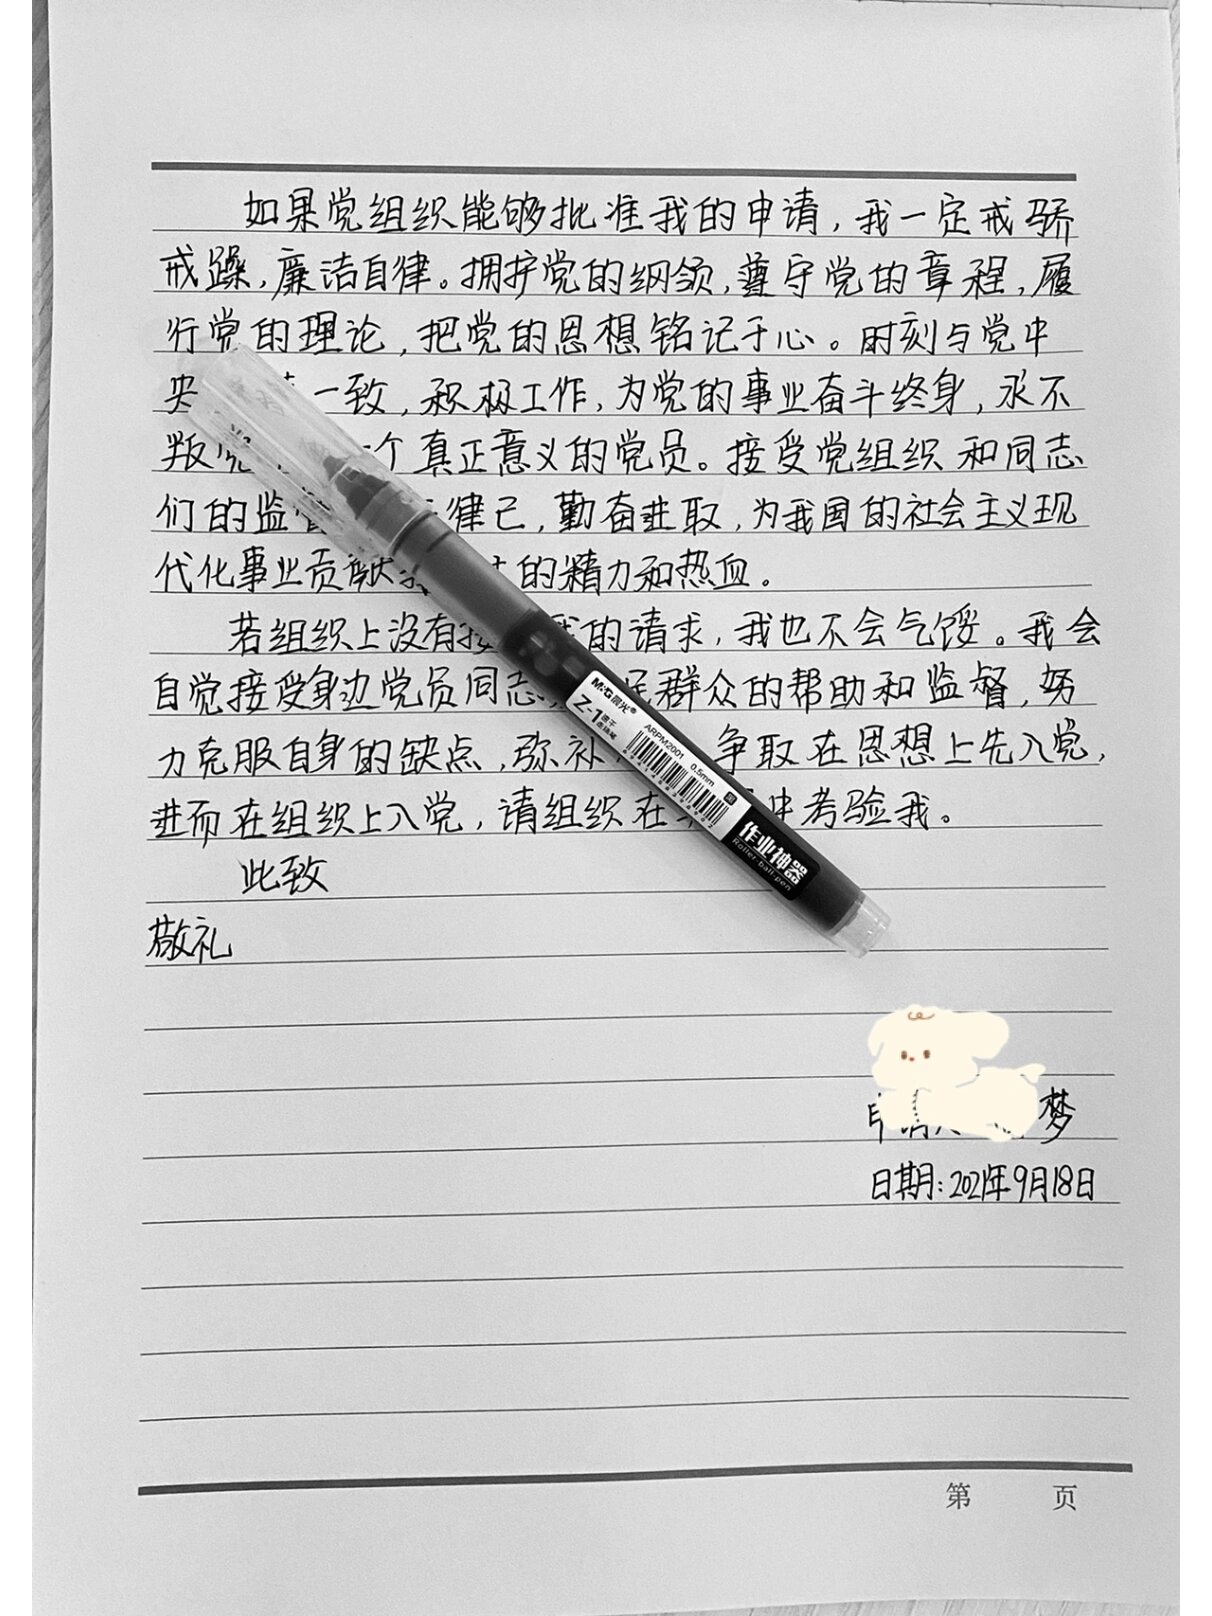 如果党组织能够批准我的申请，我一定戒骄
戒躁，廉洁自律。拥护党的纲领，遵守党的章程，履
行党的理论，把党的思想铭记于心。时刻与党中
央一致，积极工作，为党的事业奋斗终身，永不
叛党个真正意义的党员。接受党组织和同志
们的监律己，勤奋进取，为我国的社会主义现
代化事业贡献的精力和热血。
若组织上没有接我的请求，我也不会气馁。我会
自觉接受身边党员同志，群众的帮助和监督，努
力克服自身的缺点，弥补争取在思想上先入党，
进而在组织上入党，请组织在中考验我。
此致
敬礼
梦
日期：2021年9月18日
第 页
M&G晨光®
Z-1速干直液笔
ARPM2001 0.5mm
作业神器
Roller-ball-pen